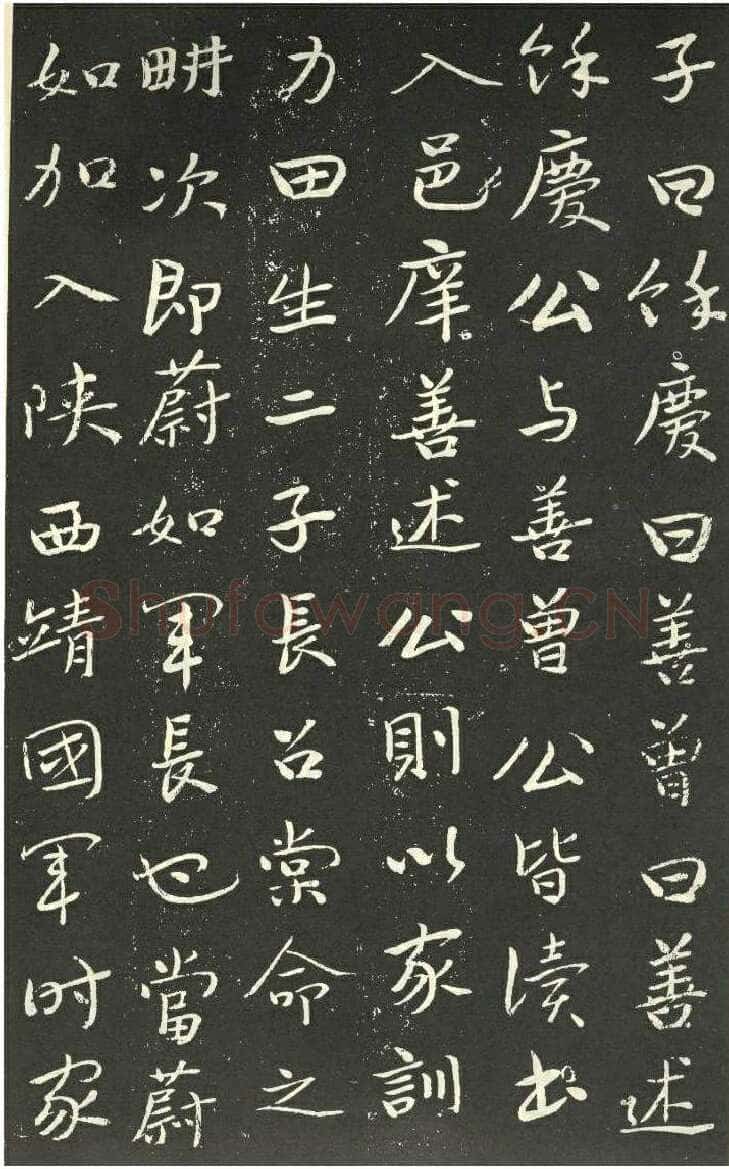 子曰餘慶曰善曾曰善述
餘慶公与善曾公皆讀書
入邑庠善述公則以家訓
力田生二子長召棠命之
畊次即蔚如軍長也當蔚
如加入陕西靖國軍时家
Shufawang.CN